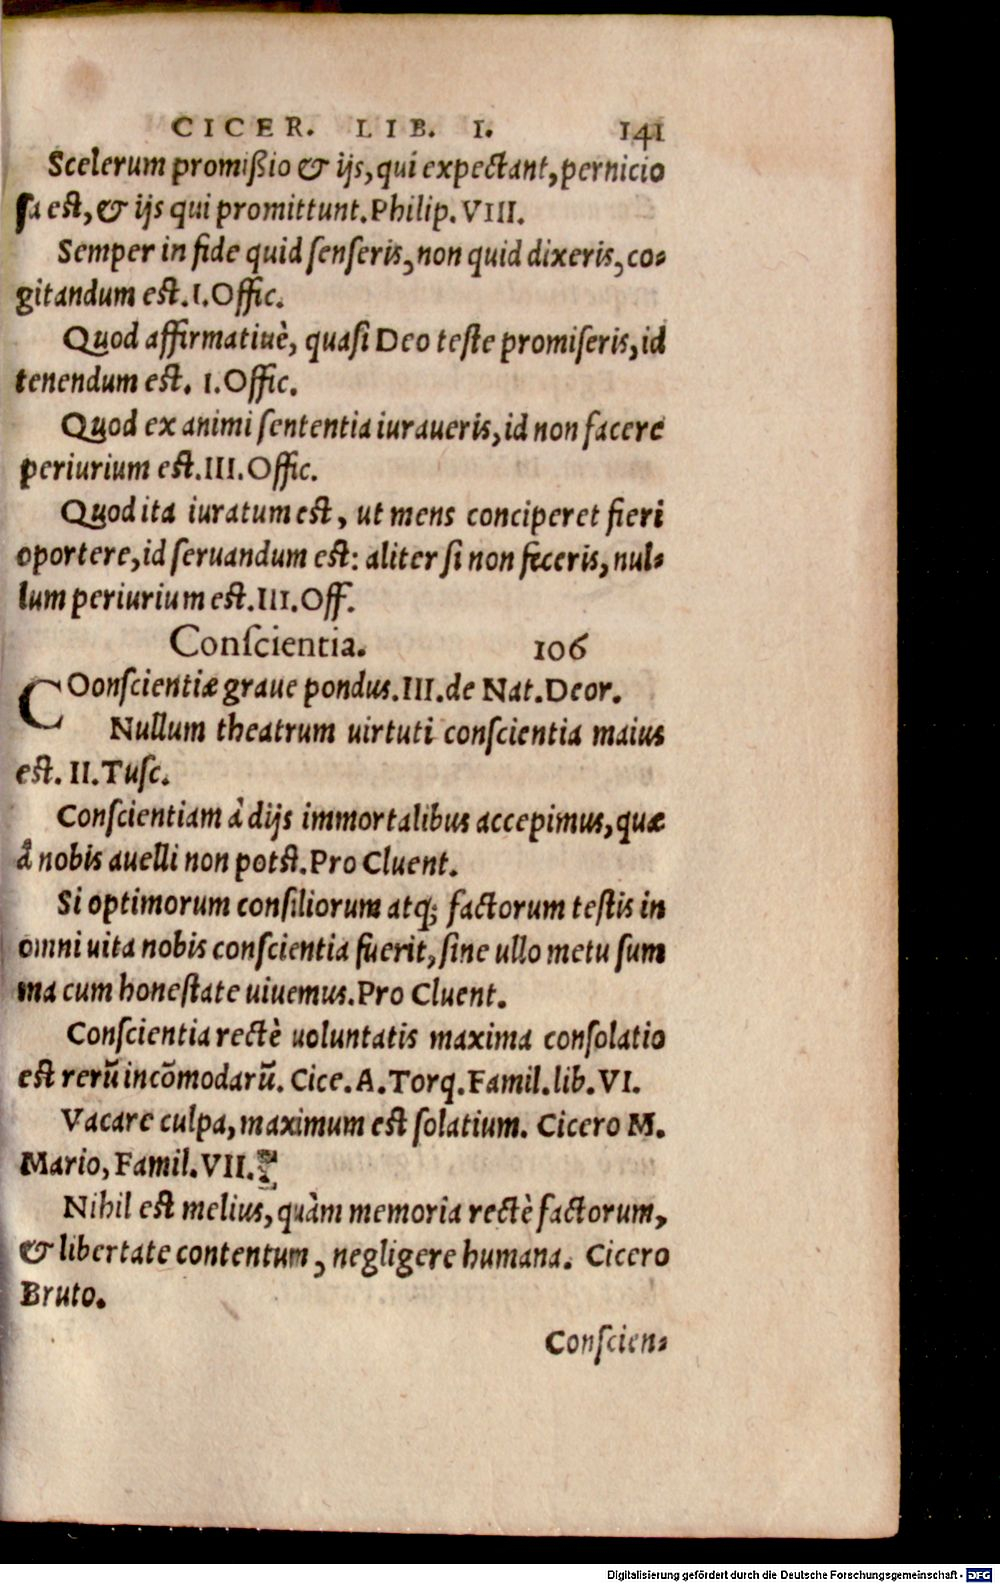 CICER. LIB. I. 141
Scelerum promißio & ijs, qui expectant, pernicio
ſa est, & ijs qui promittunt. Philip. VIII.
Semper in fide quid ſenſeris, non quid dixeris, co-
gitandum est. I. Offic.
Quod affirmatiuè, quaſi Deo teſte promiſeris, id
tenendum est. I. Offic.
Quod ex animi ſententia iuraueris, id non facere
periurium est. III. Offic.
Quod ita iuratum est, ut mens conciperet fieri
oportere, id ſeruandum est: aliter ſi non feceris, nul-
lum periurium est. III. Off.
Conſcientia. 106
COonſcientiæ graue pondus. III. de Nat. Deor.
Nullum theatrum uirtuti conſcientia maius
est. II. Tuſc.
Conſcientiam à dijs immortalibus accepimus, quæ
â nobis auelli non potst. Pro Cluent.
Si optimorum conſiliorum atq; factorum teſtis in
omni uita nobis conſcientia fuerit, ſine ullo metu ſum
ma cum honeſtate uiuemus. Pro Cluent.
Conſcientia rectè uoluntatis maxima conſolatio
est rerũ incõmodarũ. Cice. A. Torq. Famil. lib. VI.
Vacare culpa, maximum est ſolatium. Cicero M.
Mario, Famil. VII.
Nihil est melius, quàm memoria rectè factorum,
& libertate contentum, negligere humana. Cicero
Bruto.
Conſcien-
Digitalisierung gefördert durch die Deutsche Forschungsgemeinschaft - DFG